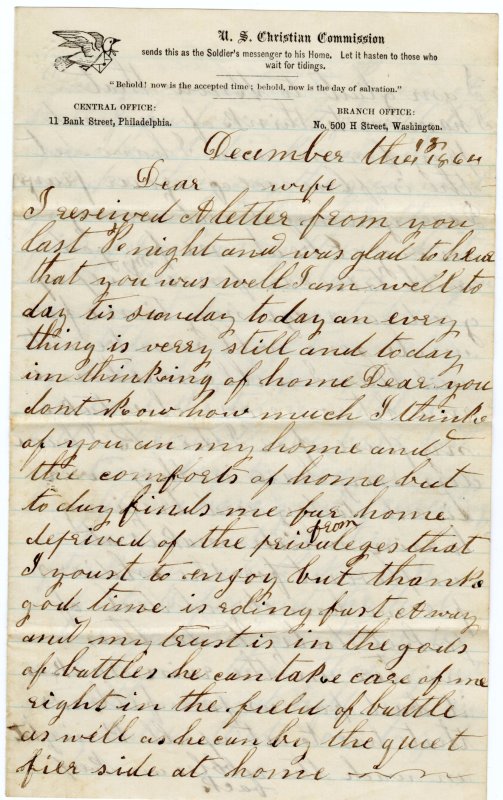 U. S. Christian Commission
sends this as the Soldier's messenger to his Home. Let it hasten to those who
wait for tidings.
"Behold! now is the accepted time; behold, now is the day of salvation."
CENTRAL OFFICE:
11 Bank Street, Philadelphia.
BRANCH OFFICE:
No. 500 H Street, Washington.
December the 1864
Dear wife
I received A letter from you
last night and was glad to hear
that you was well I am well to
day tis sunday today an evry
thing is verry still and today
im thinking of home Dear you
dont know how much I think
of you an my home and
the comforts of home but
to day finds me far from home
deprived of the privaleges that
I youst to enjoy but thank
god time is roling fast Away
and my trust is in the gods
of battles he can take care of me
right in the field of battle
as well as he can by the quiet
fier side at home